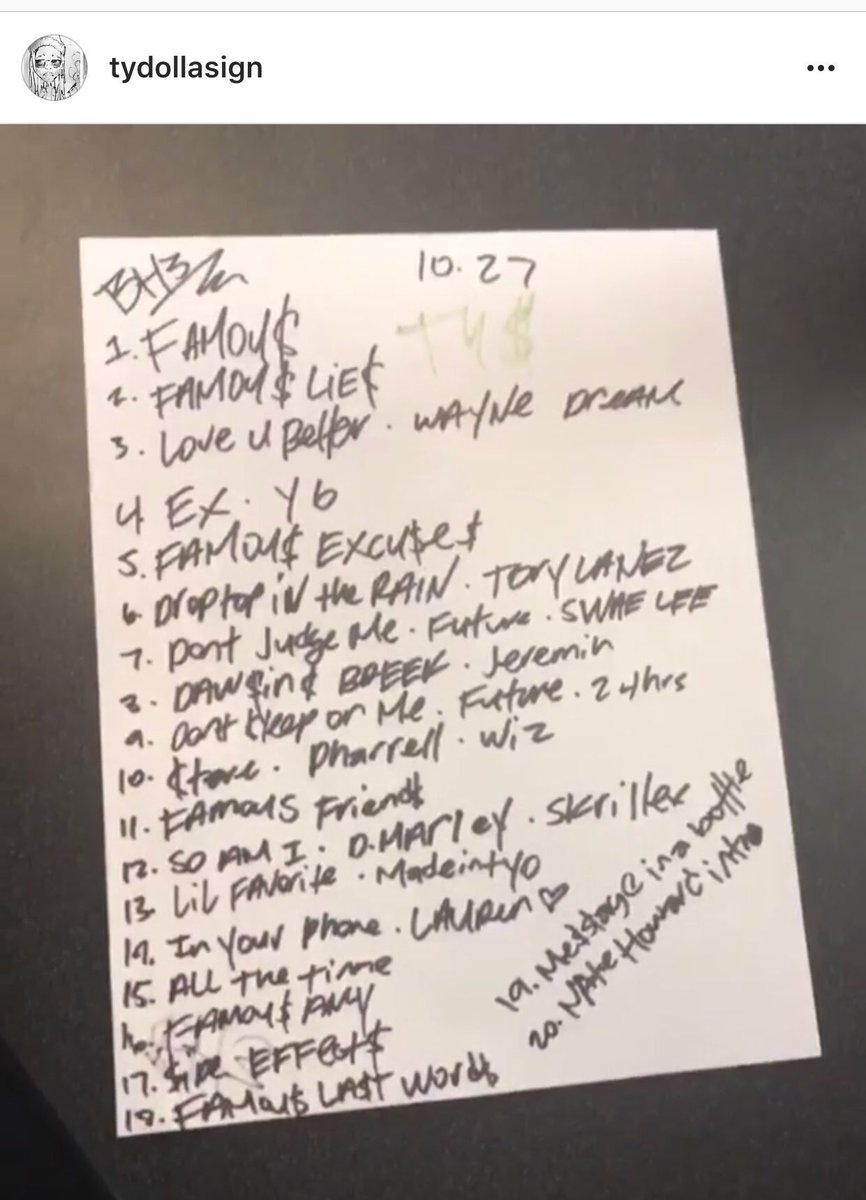 tydollasign
BH3
10.27
TY$
1. FAMOU$
2. FAMOU$ LiE$
3. Love u Better. WAYNE DreAM
4 EX. YG
5. FAMOU$ EXCU$E$
6. Droptop iN the RAIN. TORY LANEZ
7. Dont Judge Me. Future. SWAE LEE
8. DAW$in$ BREEK. Jeremih
9. Dont $leep on Me. Future. 24hrs
10. $tare. Pharrell. Wiz
11. FAMOUS Friend$
12. SO AM I. D.MARLEY. Skrillex
13. LiL FAVorite. Madeintyo
14. In Your phone. LAUREN ♡
15. ALL the time
16. FAMOU$ AMY
17. $iDE EFFect$
18. FAMOU$ LA$T Word$
19. Me$$age in a bottle
20. NAte Howard intro